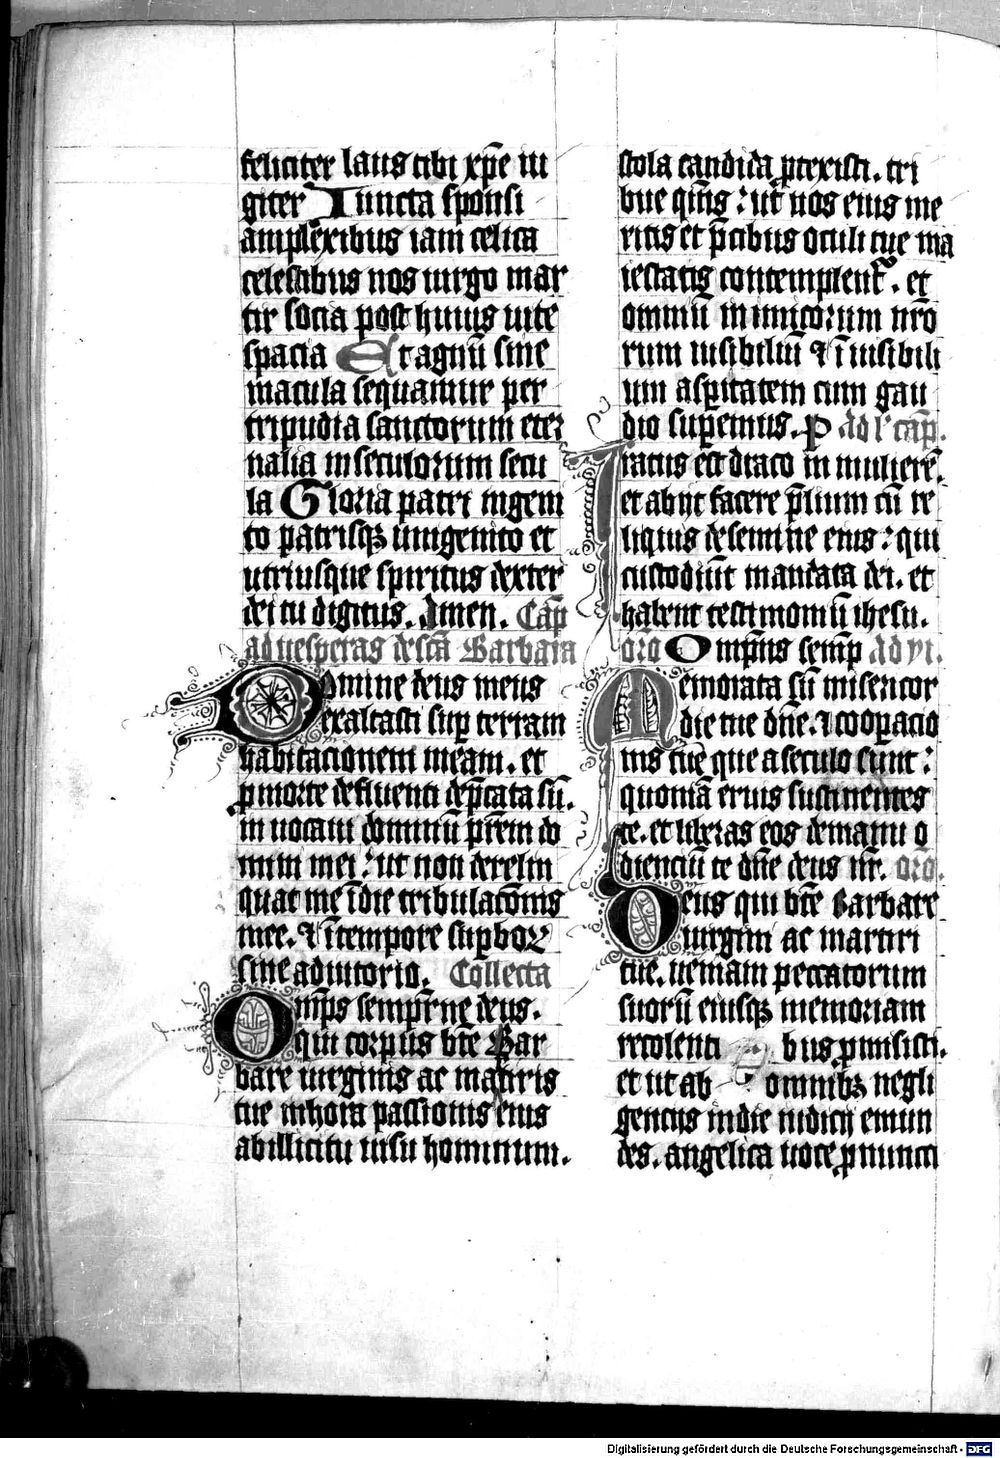 feliciter laus tibi xp̄e iu
giter Iuncta sponsi
amplexibus iam celica
celestibus nos uirgo mar
tir socia post huius uite
spacia Et agnū sine
macula sequamur per
tripudia sanctorum eter
nalia in seculorum secu
la Gloria patri ingeni
to patrisqꝫ unigenito et
utriusque spiritus dexter
dei tu digitus. Amen. Cap̄
ad uesperas de scā Barbara
Domine deus meus
exaltasti sup̄ terram
habitacionem meam. et
ꝓ morte defluenti dep̄cata sū.
in uocaui dominū pr̄em do
mini mei: ut non derelin
quat me ī die tribulacōnis
mee. ⁊ ī tempore suꝑboꝝ
sine adiutorio. Collecta
Omp̄s semp̄rn̄e deus.
qui corpus bt̄e Bar
bare uirginis ac martiris
tue in hora passionis eius
ab illicitu uisu hominum.
stola candida p̄texisti. tri
bue qm̄s: ut nos eius me
ritis et p̄cibus oculi tue ma
iestatis contemplent᷑. et
omniū inimicorum nr̄o
rum uisibiliū ⁊ ī uisibili
um asꝑitatem cum gau
dio suꝑemus. P Ad l' cap̄.
Iratus est draco in mulierē.
et abijt facere p̄lium cū re
liquis de semine eius: qui
custodiūt mandata dei. et
habent testimoniū ihesu.
orō Omp̄ns semꝑ Ad vi.
Memorata sū misericor
die tue dn̄e. ⁊ cooꝑacio
nis tue que a seculo sunt:
quoniā eruis sustinentes
te. et liberas eos de manu o
diencium te dn̄e deus nr̄. orō.
Deus qui bt̄e Barbare
uirgini ac martiri
tue. ueniam peccatorum
suorū eiusqꝫ memoriam
recolenti bus ꝓmisisti.
et ut ab omnibꝫ negli
gentijs in die iudicij emun
des. angelica uoce ꝓnunci
Digitalisierung gefördert durch die Deutsche Forschungsgemeinschaft - DFG